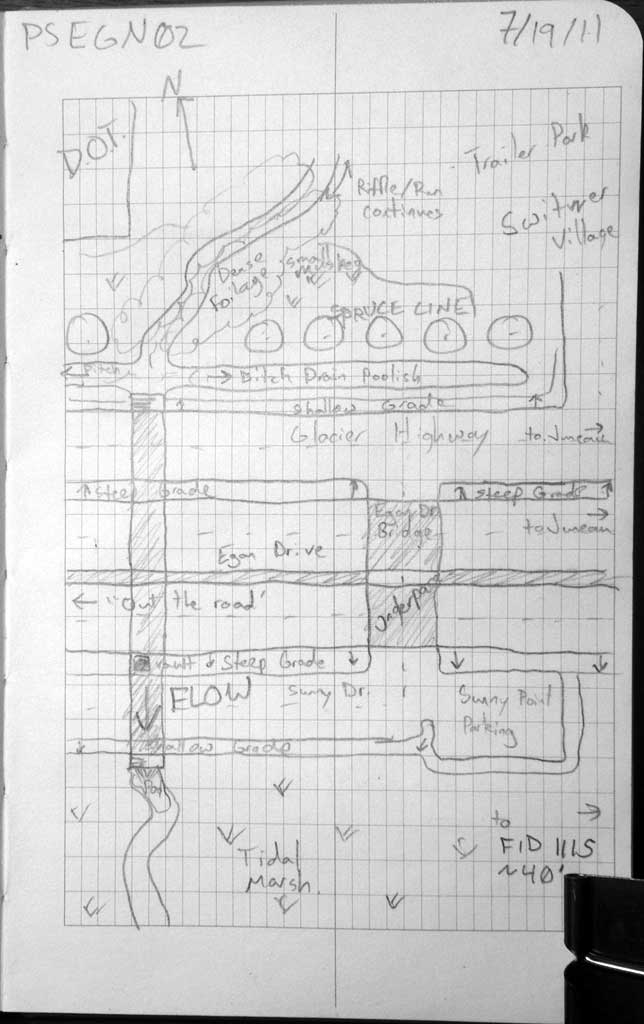 PSEGN02
7/19/11
N
D.O.T.
Trailer Park
Riffle/Run
continues
Switzer
Village
Dense
Foilage
small
muskeg
SPRUCE LINE
Ditch
→ Ditch Drain Poolish
shallow Grade
Glacier Highway
to Juneau
steep Grade
steep Grade
Egan Dr.
Bridge
to Juneau
Egan Drive
underpass
← "out the road"
vault
Steep Grade
FLOW
Sunny Dr.
Sunny Point
Parking
shallow Grade
Pool
to
FID 1115
~40'
Tidal
Marsh.